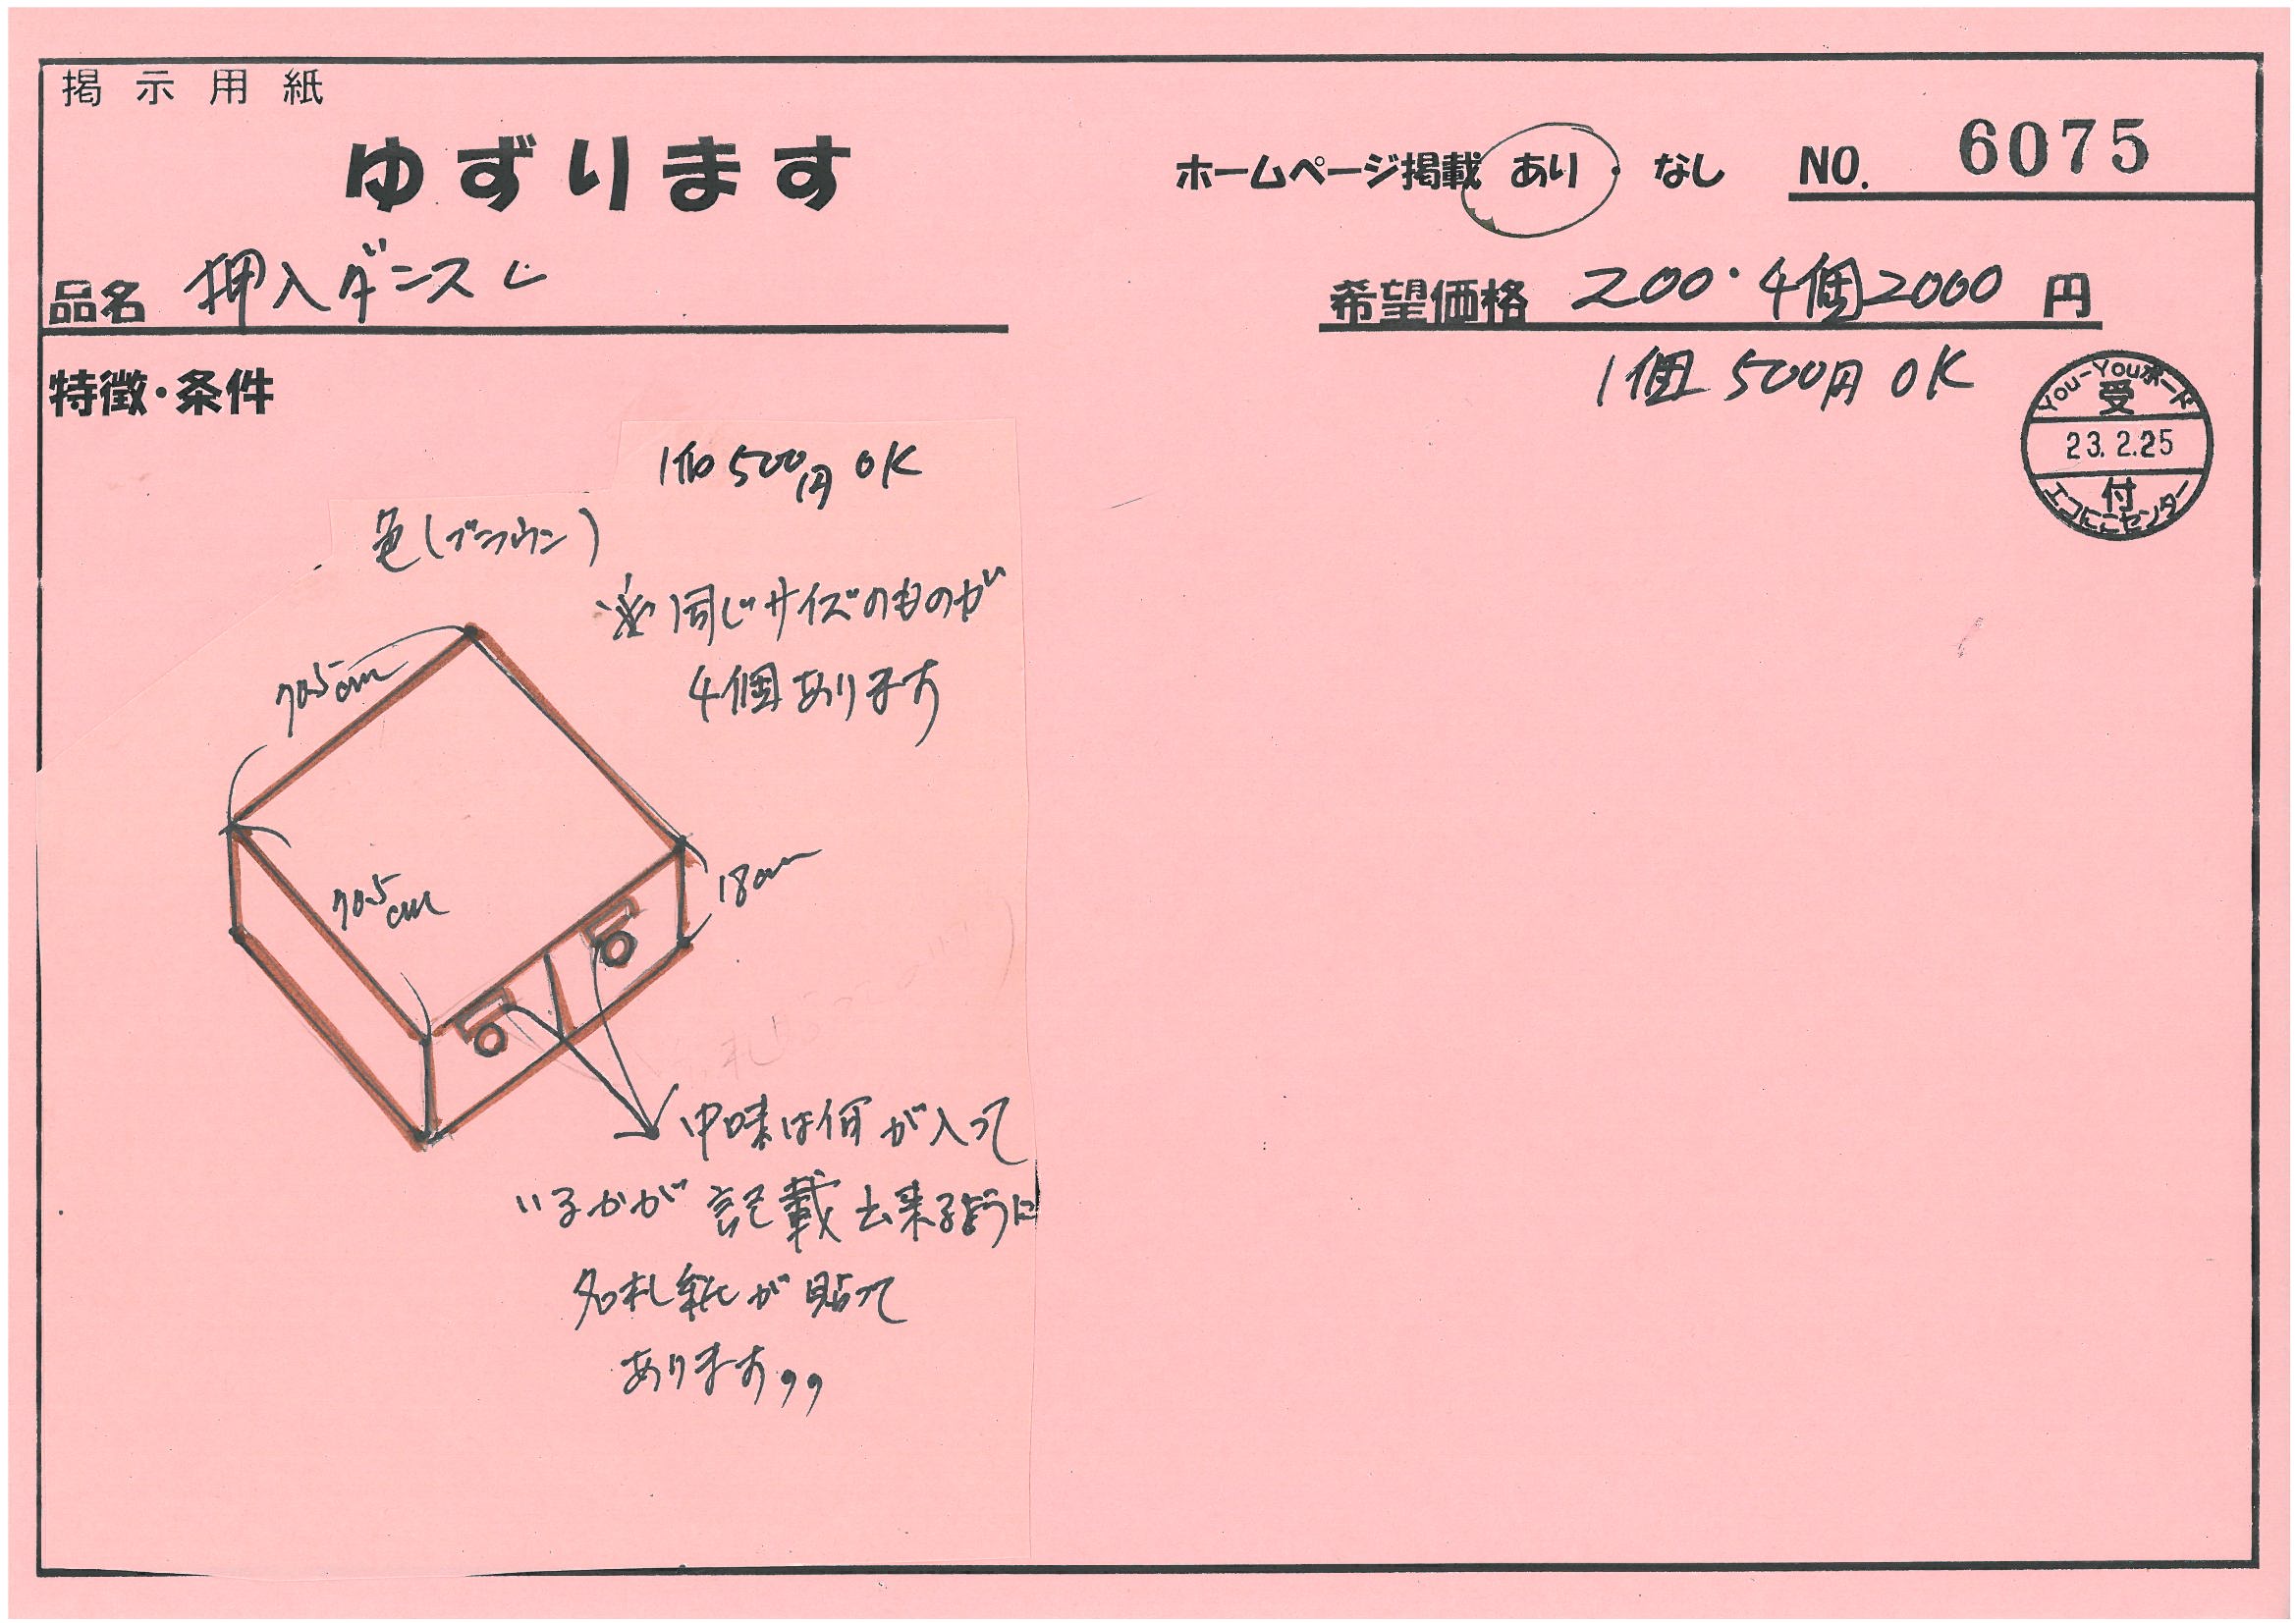 掲示用紙
ゆずります
ホームページ掲載 あり・なし NO. 6075
品名 押入ダンス
希望価格 200・4個2000 円
1個 500円 OK
You-Youボード
受
23.2.25
付
エコにこセンター
特徴・条件
1個 500円 OK
色(ブラウン)
※同じサイズのものが
4個あります
70.5cm
70.5cm
18cm
中味は何が入って
いるかが記載出来るように
名札紙が貼って
あります,,